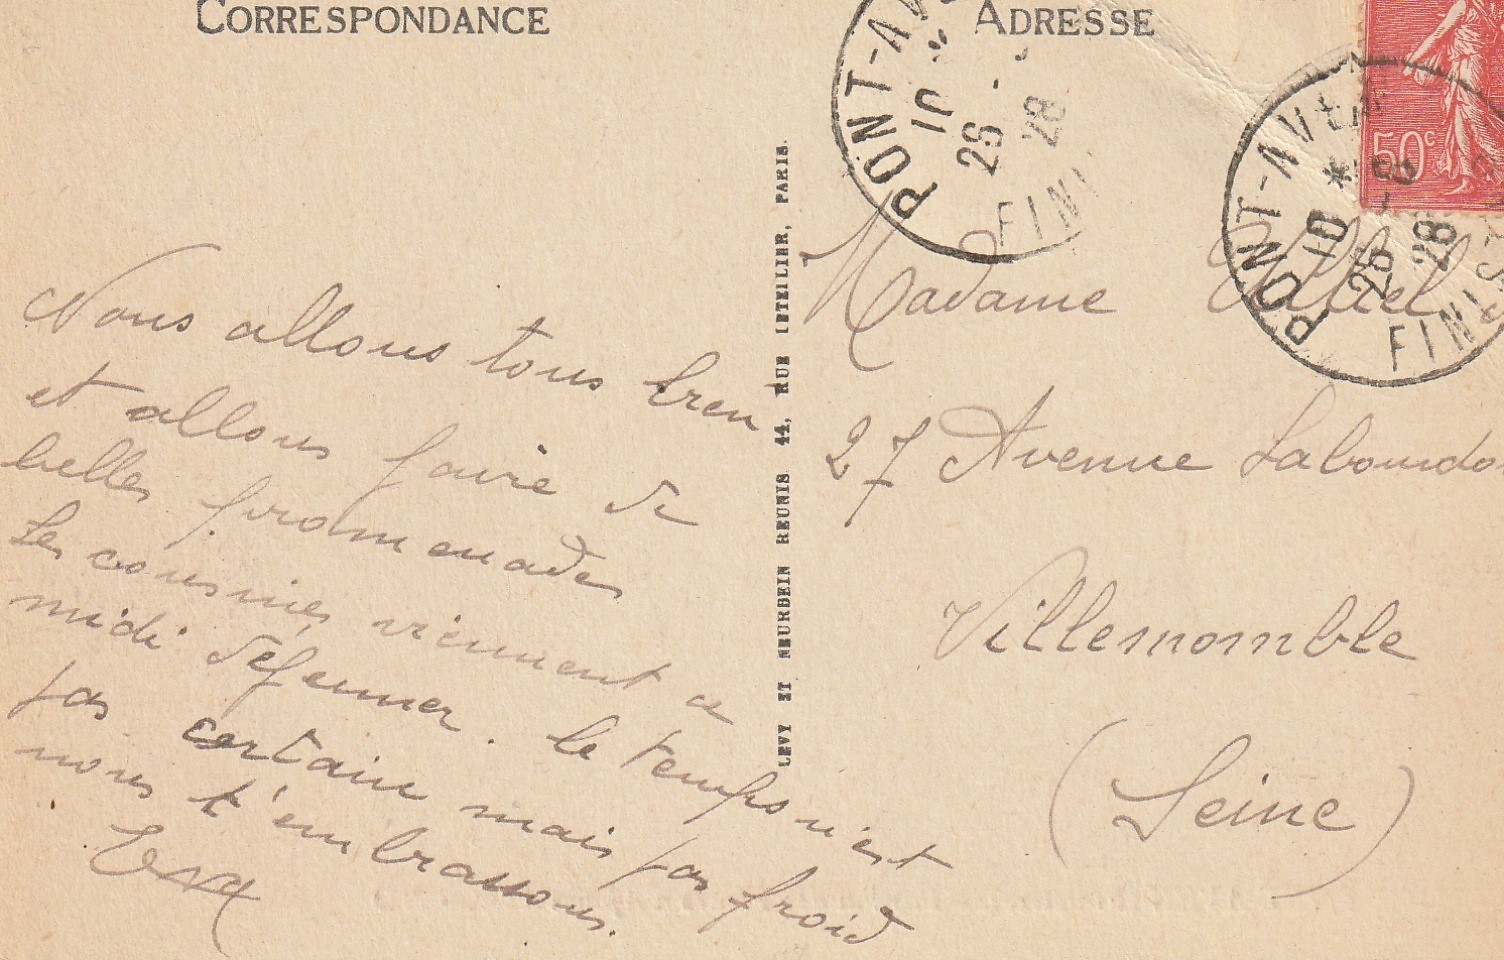 CORRESPONDANCE
ADRESSE
Nous allons tous bien
et allons faire de
belles promenades
Les cousines viennent ce
midi déjeuner. le temps n'est
pas certain mais pas froid
nous t'embrassons.
LEVY ET NEURDEIN REUNIS 44, RUE LETELLIER, PARIS.
Madame
27 Avenue Labourdo
Villemomble
(Seine)
PONT-AV
10
26
28
FINI
50c
PONT-AVEN
10
26-8
28
FINIST